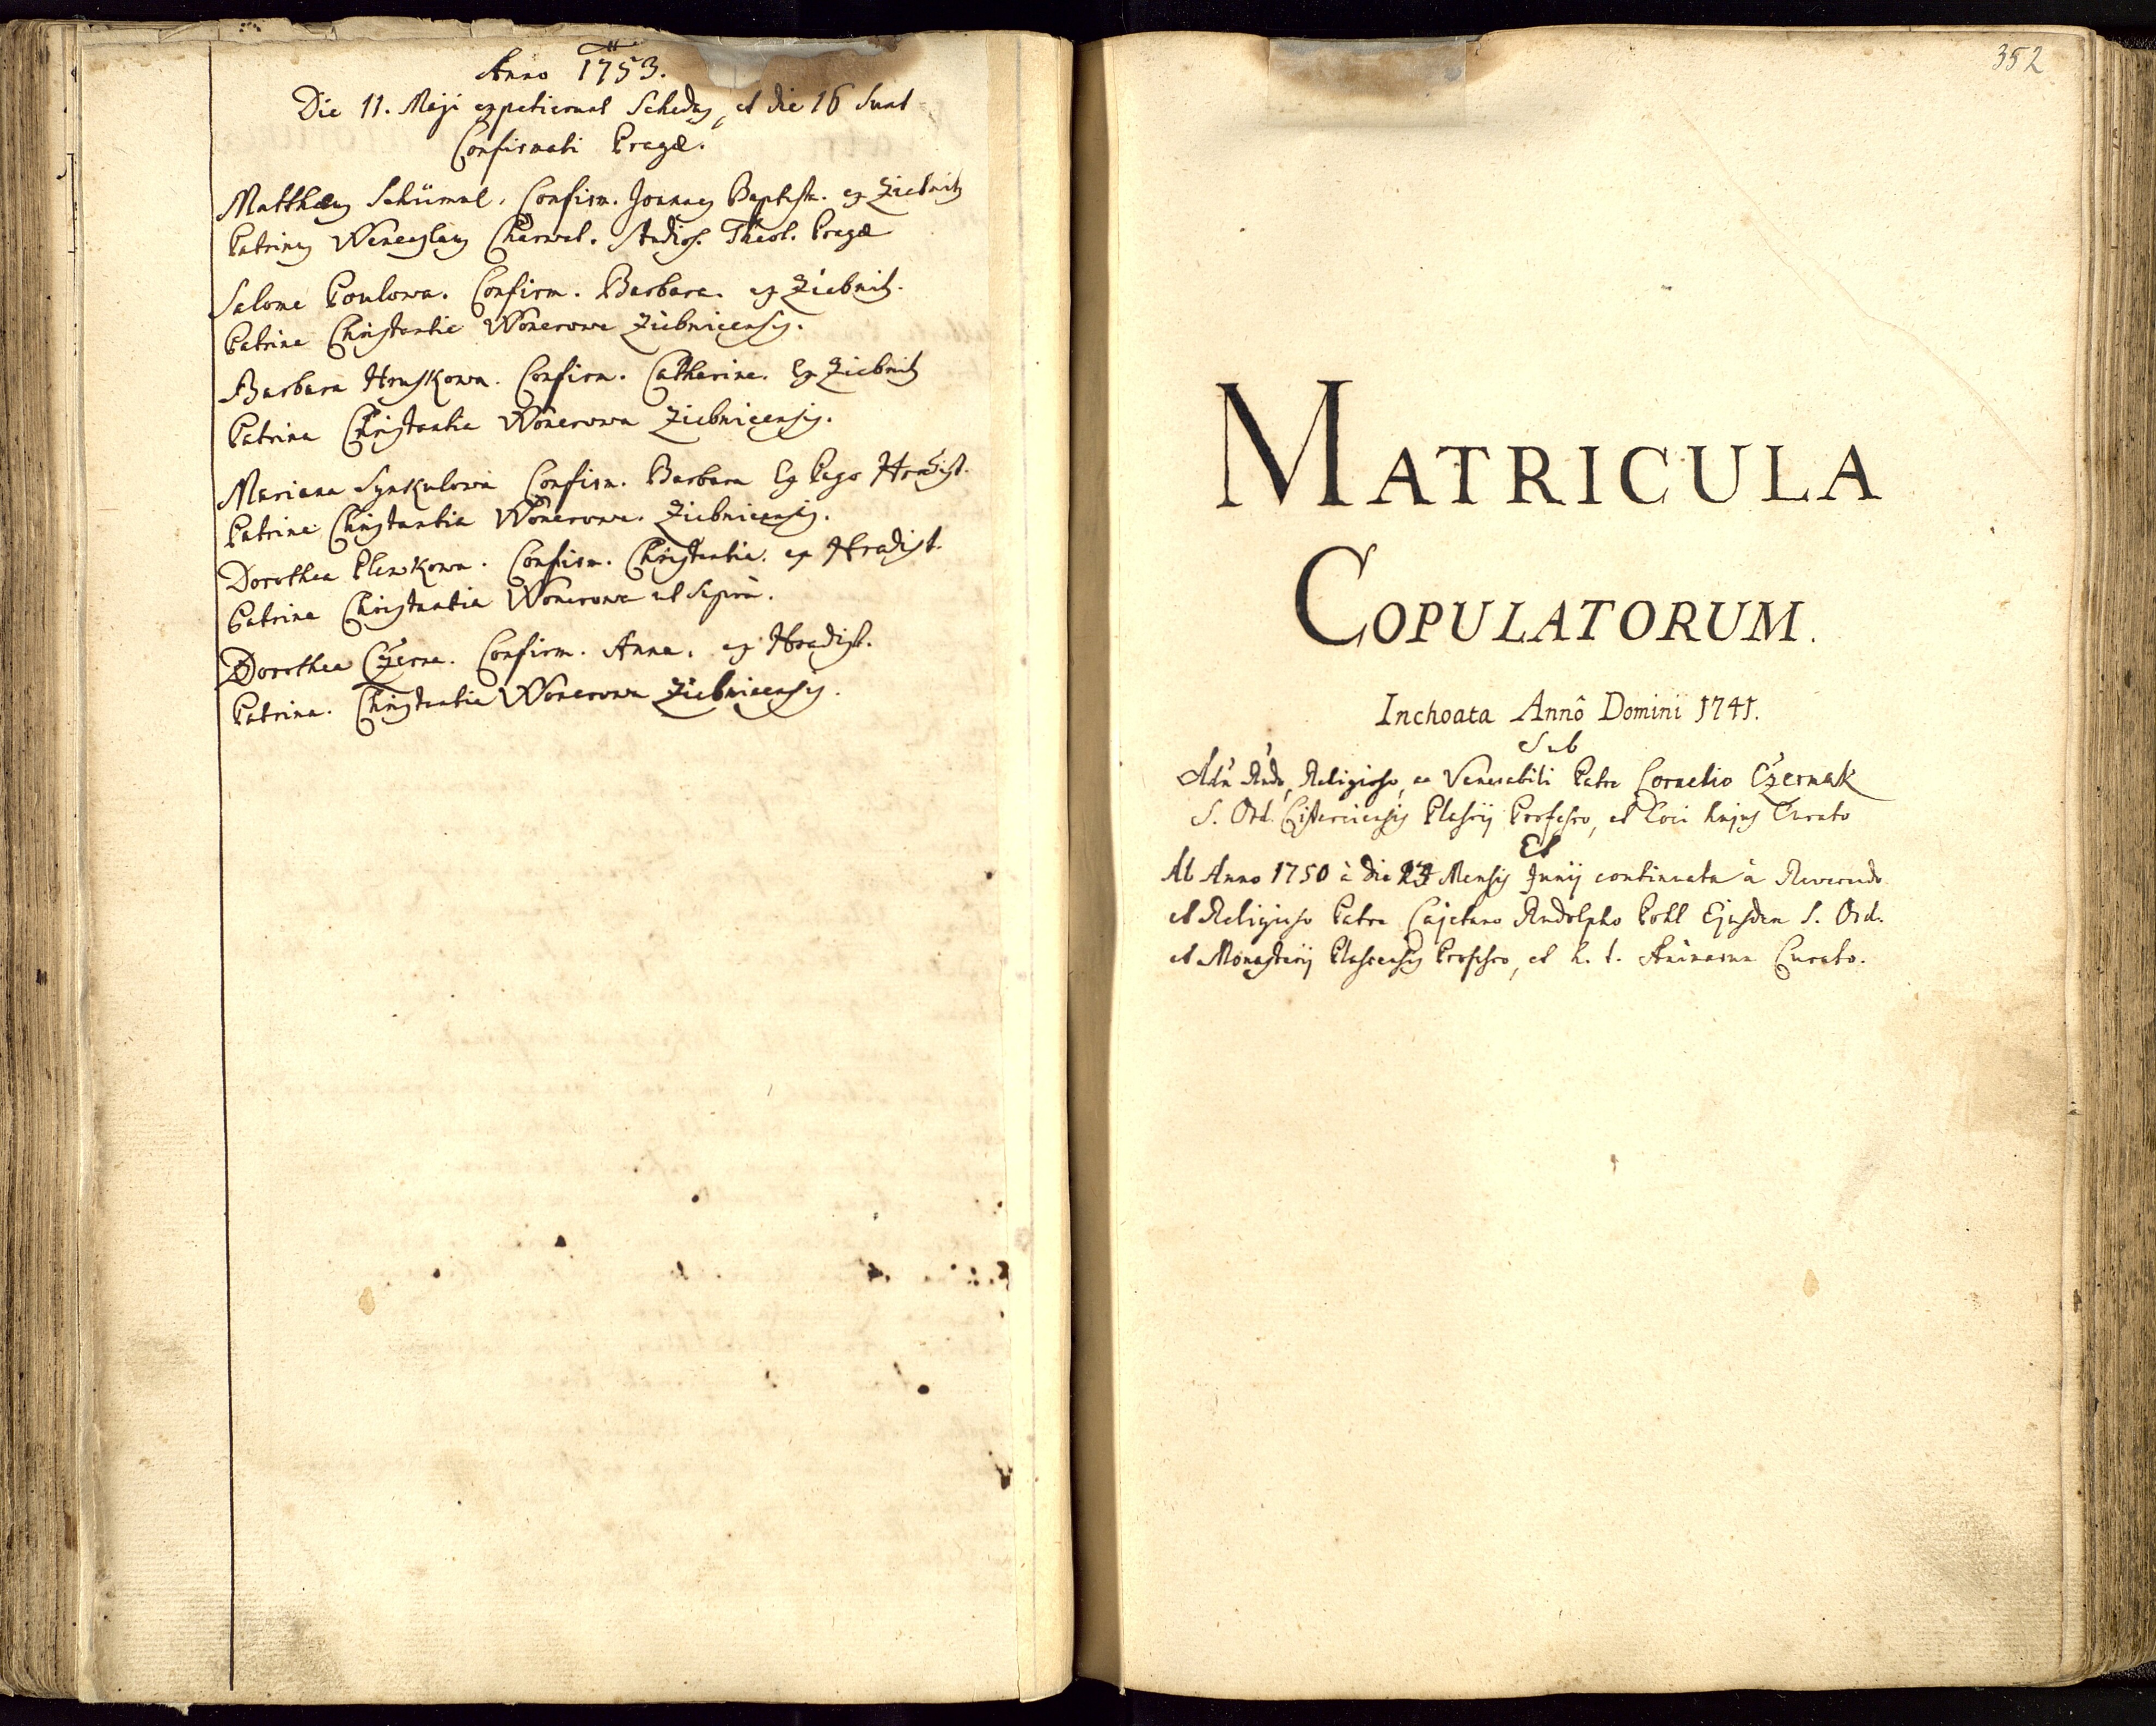 Anno 1753.
Die 11. Maji expetierunt Schedas, et die 16 sunt
Confirmati Pragæ.
Matthæus Schüml. Confirm. Joannes Baptista. ex Ziebnitz
Patrinus Wenceslaus Charwat. Studios. Theol. Pragæ
Salome Poulowa. Confirm. Barbara. ex Ziebnitz.
Patrina Christantia Wonerowa Ziebnicensis.
Barbara Hruskowa. Confirm. Catharina. Ex Ziebnitz
Patrina Christantia Wonerowa Ziebnicensis.
Mariana Synkulowa Confirm. Barbara Ex Pago Hradist.
Patrina Christantia Wonerowa. Ziebnicensis.
Dorothea Plenkowa. Confirm. Christantia. ex Hradist.
Patrina Christantia Wonerowa ut supra.
Dorothea Czerna. Confirm. Anna. ex Hradist.
Patrina. Christantia Wonerowa Ziebnicensis.
352
MATRICULA
COPULATORUM.
Inchoata Annô Domini 1741.
Sub
Adm Rndo, Religioso, ac Venerabili Patre Cornelio Czermak
S. Ord. Cisterciensis Plassij Professo, et Loci hujus Curato
Et
Ab Anno 1750 à die Mensis Junij continuata à Reverendo
et Religioso Patre Cajetano Rudolpho Pohl Ejusdem S. Ord.
et Monasterij Plassensis Professo, et h. t. Animarum Curato.